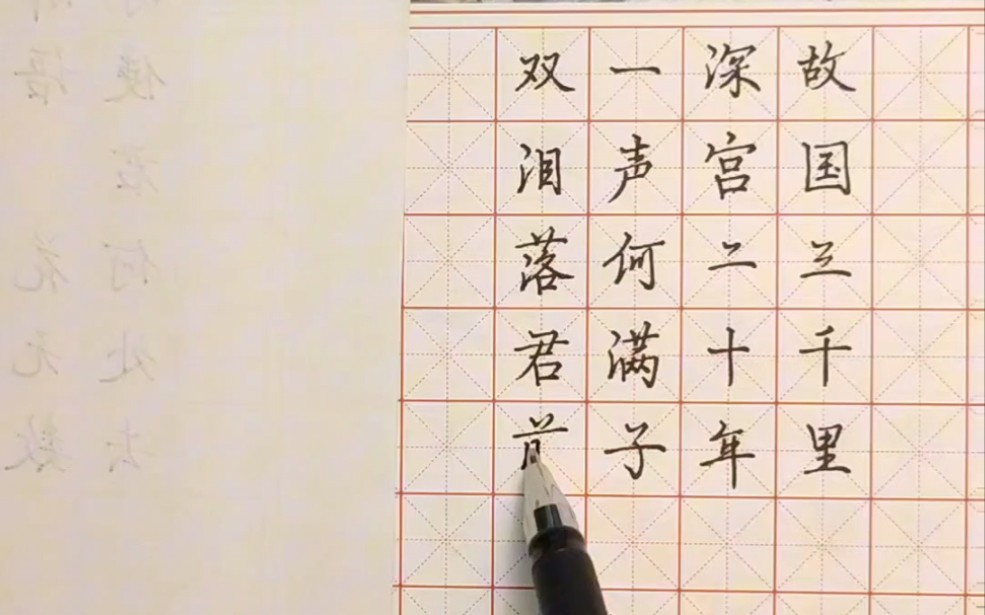 故国三千里
深宫二十年
一声何满子
双泪落君前